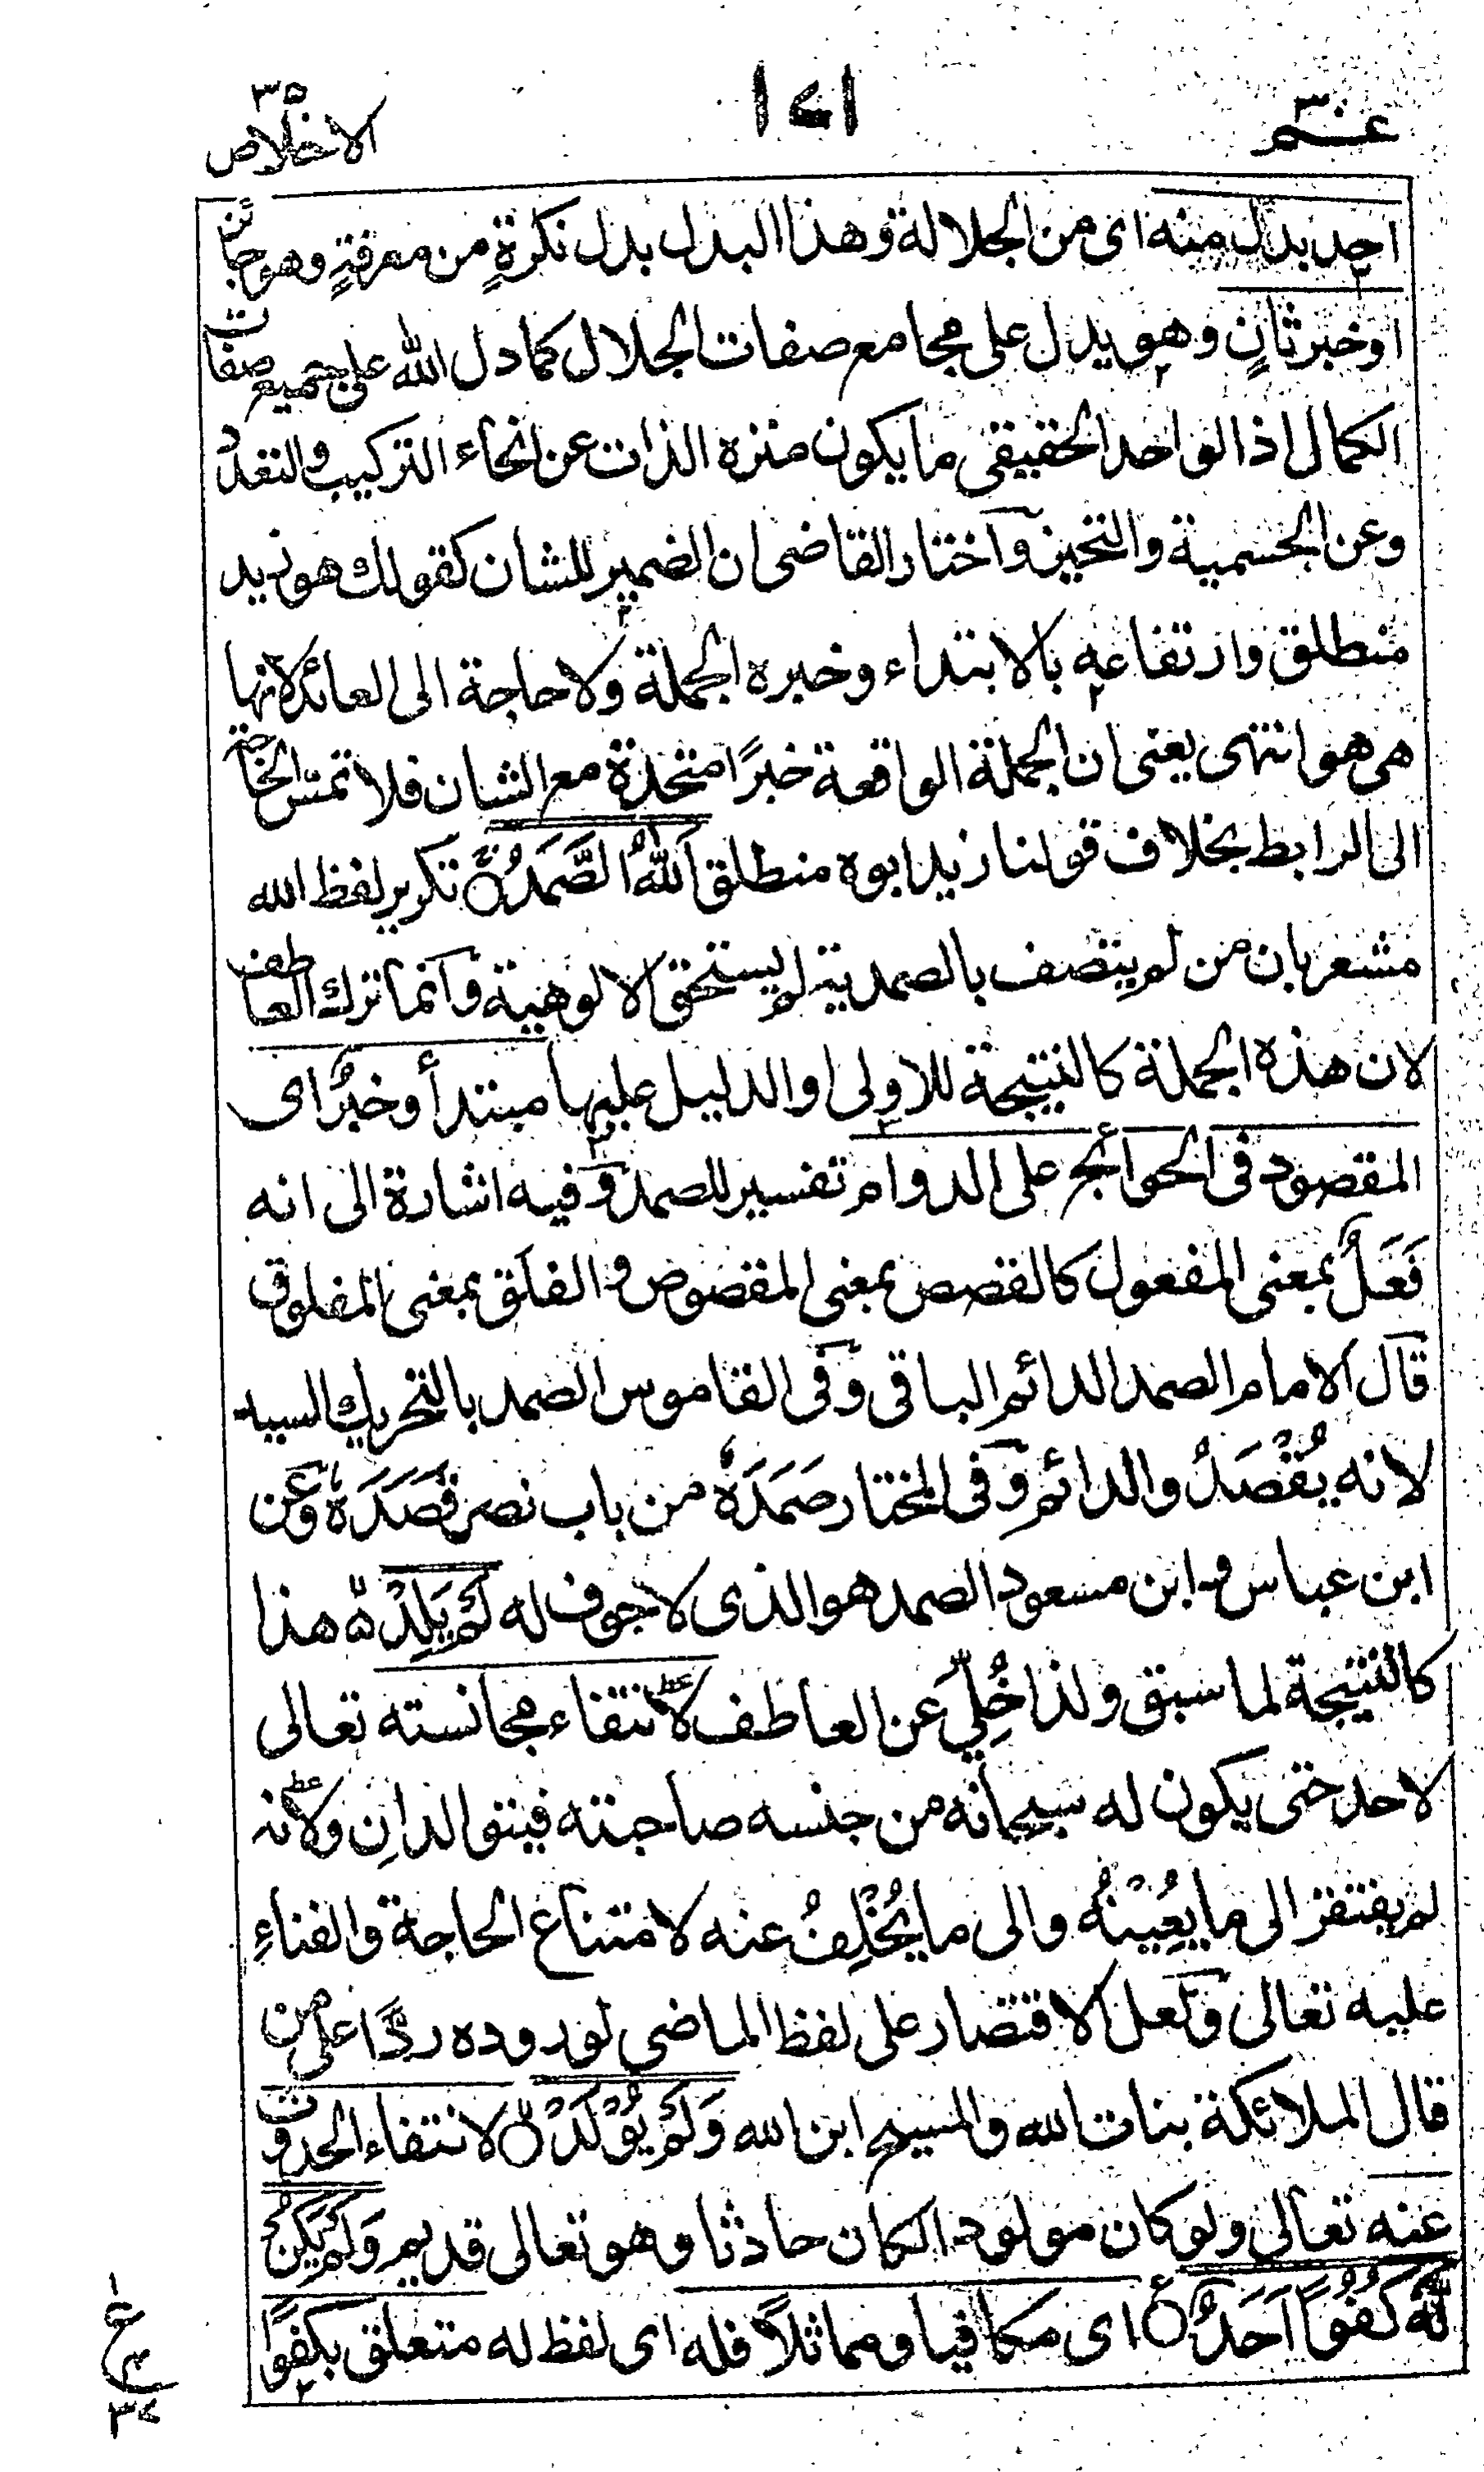 عـم ٣٠
١٧١
الاخلاص ٣٥
احد بدل منه اى من الجلالة وهذا البدل بدل نكرةٍ من معرفةٍ وهو جائز
او خبر ثانٍ وهو يدل على مجامع صفات الجلال كما دل الله على جميع صفات
الكمال اذ الواحد الحقيقى ما يكون منزه الذات عن انحاء التركيب والتعدد
وعن الجسمية والتحيز وآختار القاضى ان الضمير للشان كقولك هو زيد
منطلق وارتفاعه بالابتداء وخبره الجملة ولا حاجة الى العائد لانها
هى هو انتهى يعنى ان الجملة الواقعة خبرًا متحدة مع الشان فلا تمس الحاجة
الى الرابط بخلاف قولنا زيد ابوه منطلق اَللهُ الصَّمَدُ تكرير لفظ الله
مشعر بان من لم يتصف بالصمدية لم يستحق الالوهية وآنما ترك العاطف
لان هذه الجملة كالنتيجة للاولى او الدليل عليها مبتدأ وخبرٌ اى
المقصود فى الحوائج على الدوام تفسير للصمد وفيه اشارة الى انه
فَعَلٌ بمعنى المفعول كالقصص بمعنى المقصوص والفلَق بمعنى المفلوق
قآل الامام الصمد الدائم الباقى وفى القاموس الصمد بالتحريك السيد
لانه يُقْصَدُ والدائم وفى المختار صَمَدَهٗ من باب نصر قَصَدَهٗ وعَن
ابن عباس وابن مسعود الصمد هو الذى لا جوف له لَمْ يَلِدْ ۵ هذا
كالنتيجة لما سبق ولذا خُلِّىَ عن العاطف لانتفاء مجانسته تعالى
لاحد حتى يكون له سبحانه من جنسه صاحبته فيتوالدانِ ولانه
لم يفتقر الى ما يُعِيْنُهٗ والى ما يُخْلِفُ عنه لامتناع الحاجة والفناءِ
عليه تعالى ولعل الاقتصار على لفظ الماضى لوروده ردًّا على من
قال الملائكة بنات الله والمسيح ابن الله وَلَمْ يُوْلَدْ لانتفاء الحدوث
عنه تعالى ولو كان مولودا لكان حادثا وهو تعالى قديم وَلَمْ يَكُنْ
لَّهٗ كُفُوًا اَحَدٌ اى مكافيا ومماثلاً فله اى لفظ له متعلق بكفوًا
ع
٣٧